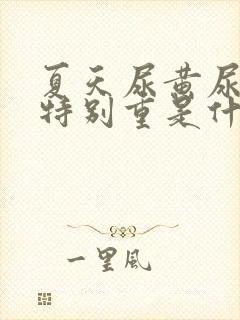 夏天尿黄尿
特别重是什
一里风